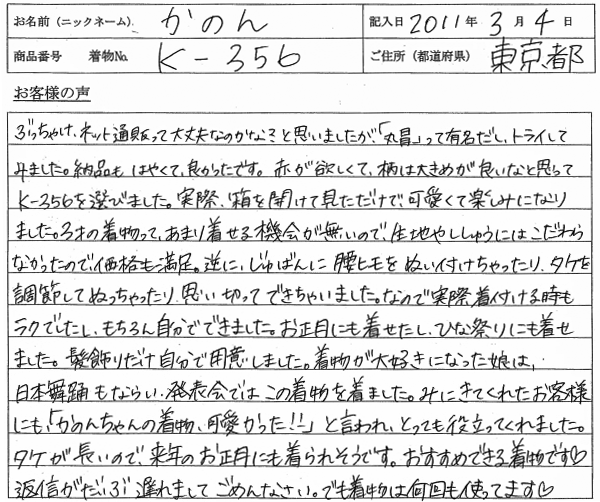 お名前(ニックネーム) かのん 記入日 2011年 3月 4日
商品番号 着物No. K-356 ご住所(都道府県) 東京都
お客様の声
ぶっちゃけ、ネット通販って大丈夫なのかなぁ?と思いましたが、「丸昌」って有名だし、トライして
みました。納品も はやくて、良かったです。 赤が欲しくて、柄は大きめが良いなと思って
K-356を選びました。実際、箱を開けて見ただけで、可愛くて楽しみになり
ました。3才の着物って、あまり着せる機会が無いので、生地やししゅうにはこだわら
なかったので、価格も満足。逆に、じゅばんに 腰ヒモを ぬい付けちゃったり、タケを
調節してぬっちゃったり、思い切って できちゃいました。なので実際着付ける時も
ラクでしたし、もちろん自分でできました。お正月にも着せたし、ひな祭りにも着せ
ました。髪飾りだけ自分で用意しました。着物が大好きになった娘は、
日本舞踊もならい、発表会では この着物を着ました。みにきてくれたお客様
にも、「かのんちゃんの着物、可愛かった!!」と言われ、とっても役立ってくれました。
タケが長いので、来年のお正月にも着られそうです。おすすめできる着物です♡
返信がだいぶ遅れまして ごめんなさい。でも着物は何回も使ってます♡